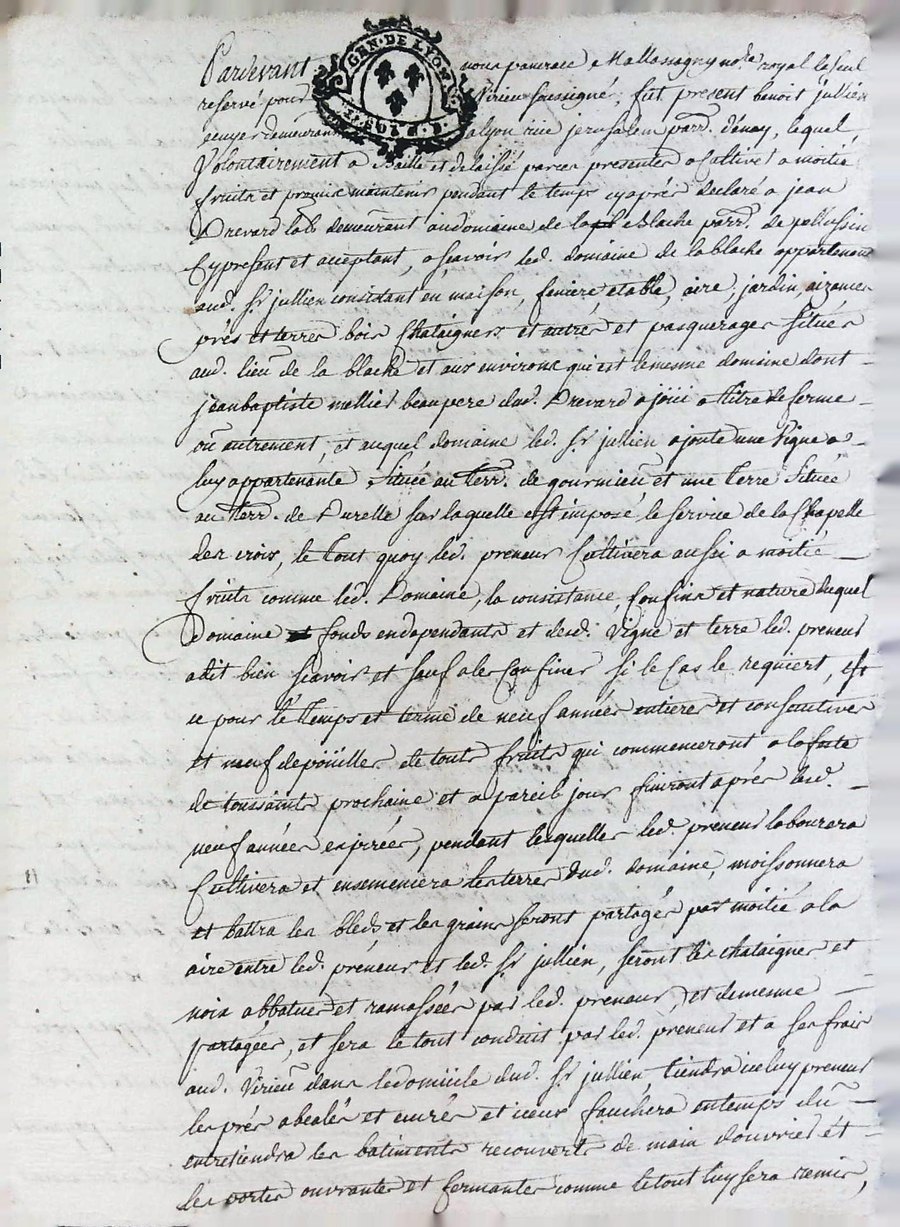 Pardevant nous pancrace Mallassagny not.re royal le seul
GEN · DE LYON
reservé pour Virieu soussigné, fut present benoit jullien
ecuyer demeurant a lyon rüe jerusalem parr. d'énay, lequel
Volontairement a Baillé et delaissé par ces presentes a Cultiver a moitié
fruits et promis maintenir pendant le temps cy aprés declaré a jean
Drevard lab. demeurant au domaine de la Blache parr. de pellussin
Cy present et acceptant, a scavoir led. domaine de la blache appartenant
aud. Sr jullien consistant en maison, feniere etable, aire, jardin, aizances
prés et terres bois Chataigners et autres et pasquerages situés
aud. lieu de la blache et aux environs qui est le mesme domaine dont
jean baptiste mellier beaupere dud. Drevard a joüi a titre de ferme
ou autrement, et auquel domaine led. Sr jullien ajoute une Vigne a
luy appartenante située au terr. de gourmieu et une terre située
au terr. de Durelle sur laquelle est imposé le service de la Chapelle
des croix, le tout quoy led. preneur Cultivera aussi a moitié
fruits comme led. Domaine, la consistance, Confins et nature duquel
Domaine et fonds en dependants et desd. Vigne et terre led. preneur
a dit bien scavoir et sauf a les Confiner si le Cas le requiert, est
ce pour le temps et terme de neuf années entieres et consecutives
et neuf depöuilles de touts fruits qui commenceront a la feste
de toussaints prochaine et a pareil jour finiront aprés lesd.
neuf années expirées, pendant lesquelles led. preneur labourera
Cultivera et ensemencera les terres dud. domaine, moissonnera
et battra les bleds et les grains seront partagés par moitié a la
aire entre led. préneur et led. Sr jullien, seront les chataignes et
noix abbatues et ramassées par led. preneur et de mesme
partagées, et sera le tout conduit par led. preneur et a ses frais
aud. Virieu dans le domicile dud. Sr jullien, tiendra iceluy preneur
les prés abealés et curés et iceux fauchera en temps du
entretiendra les batiments recouverts de main d'ouvrier et
les portes ouvrantes et fermantes comme le tout luy sera remis,